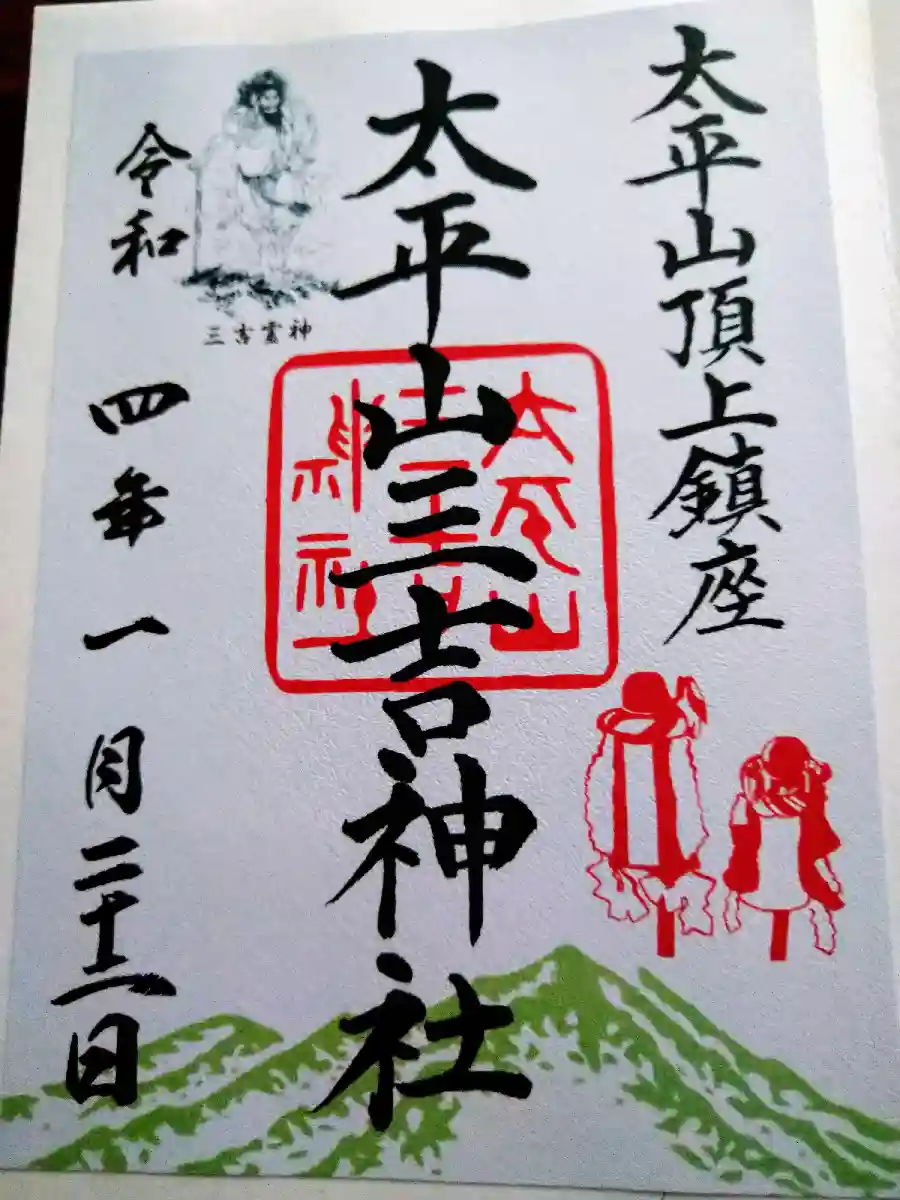 太平山頂上鎮座
太平山三吉神社
太平山
三吉
神社
三吉霊神
令和四年一月二十二日